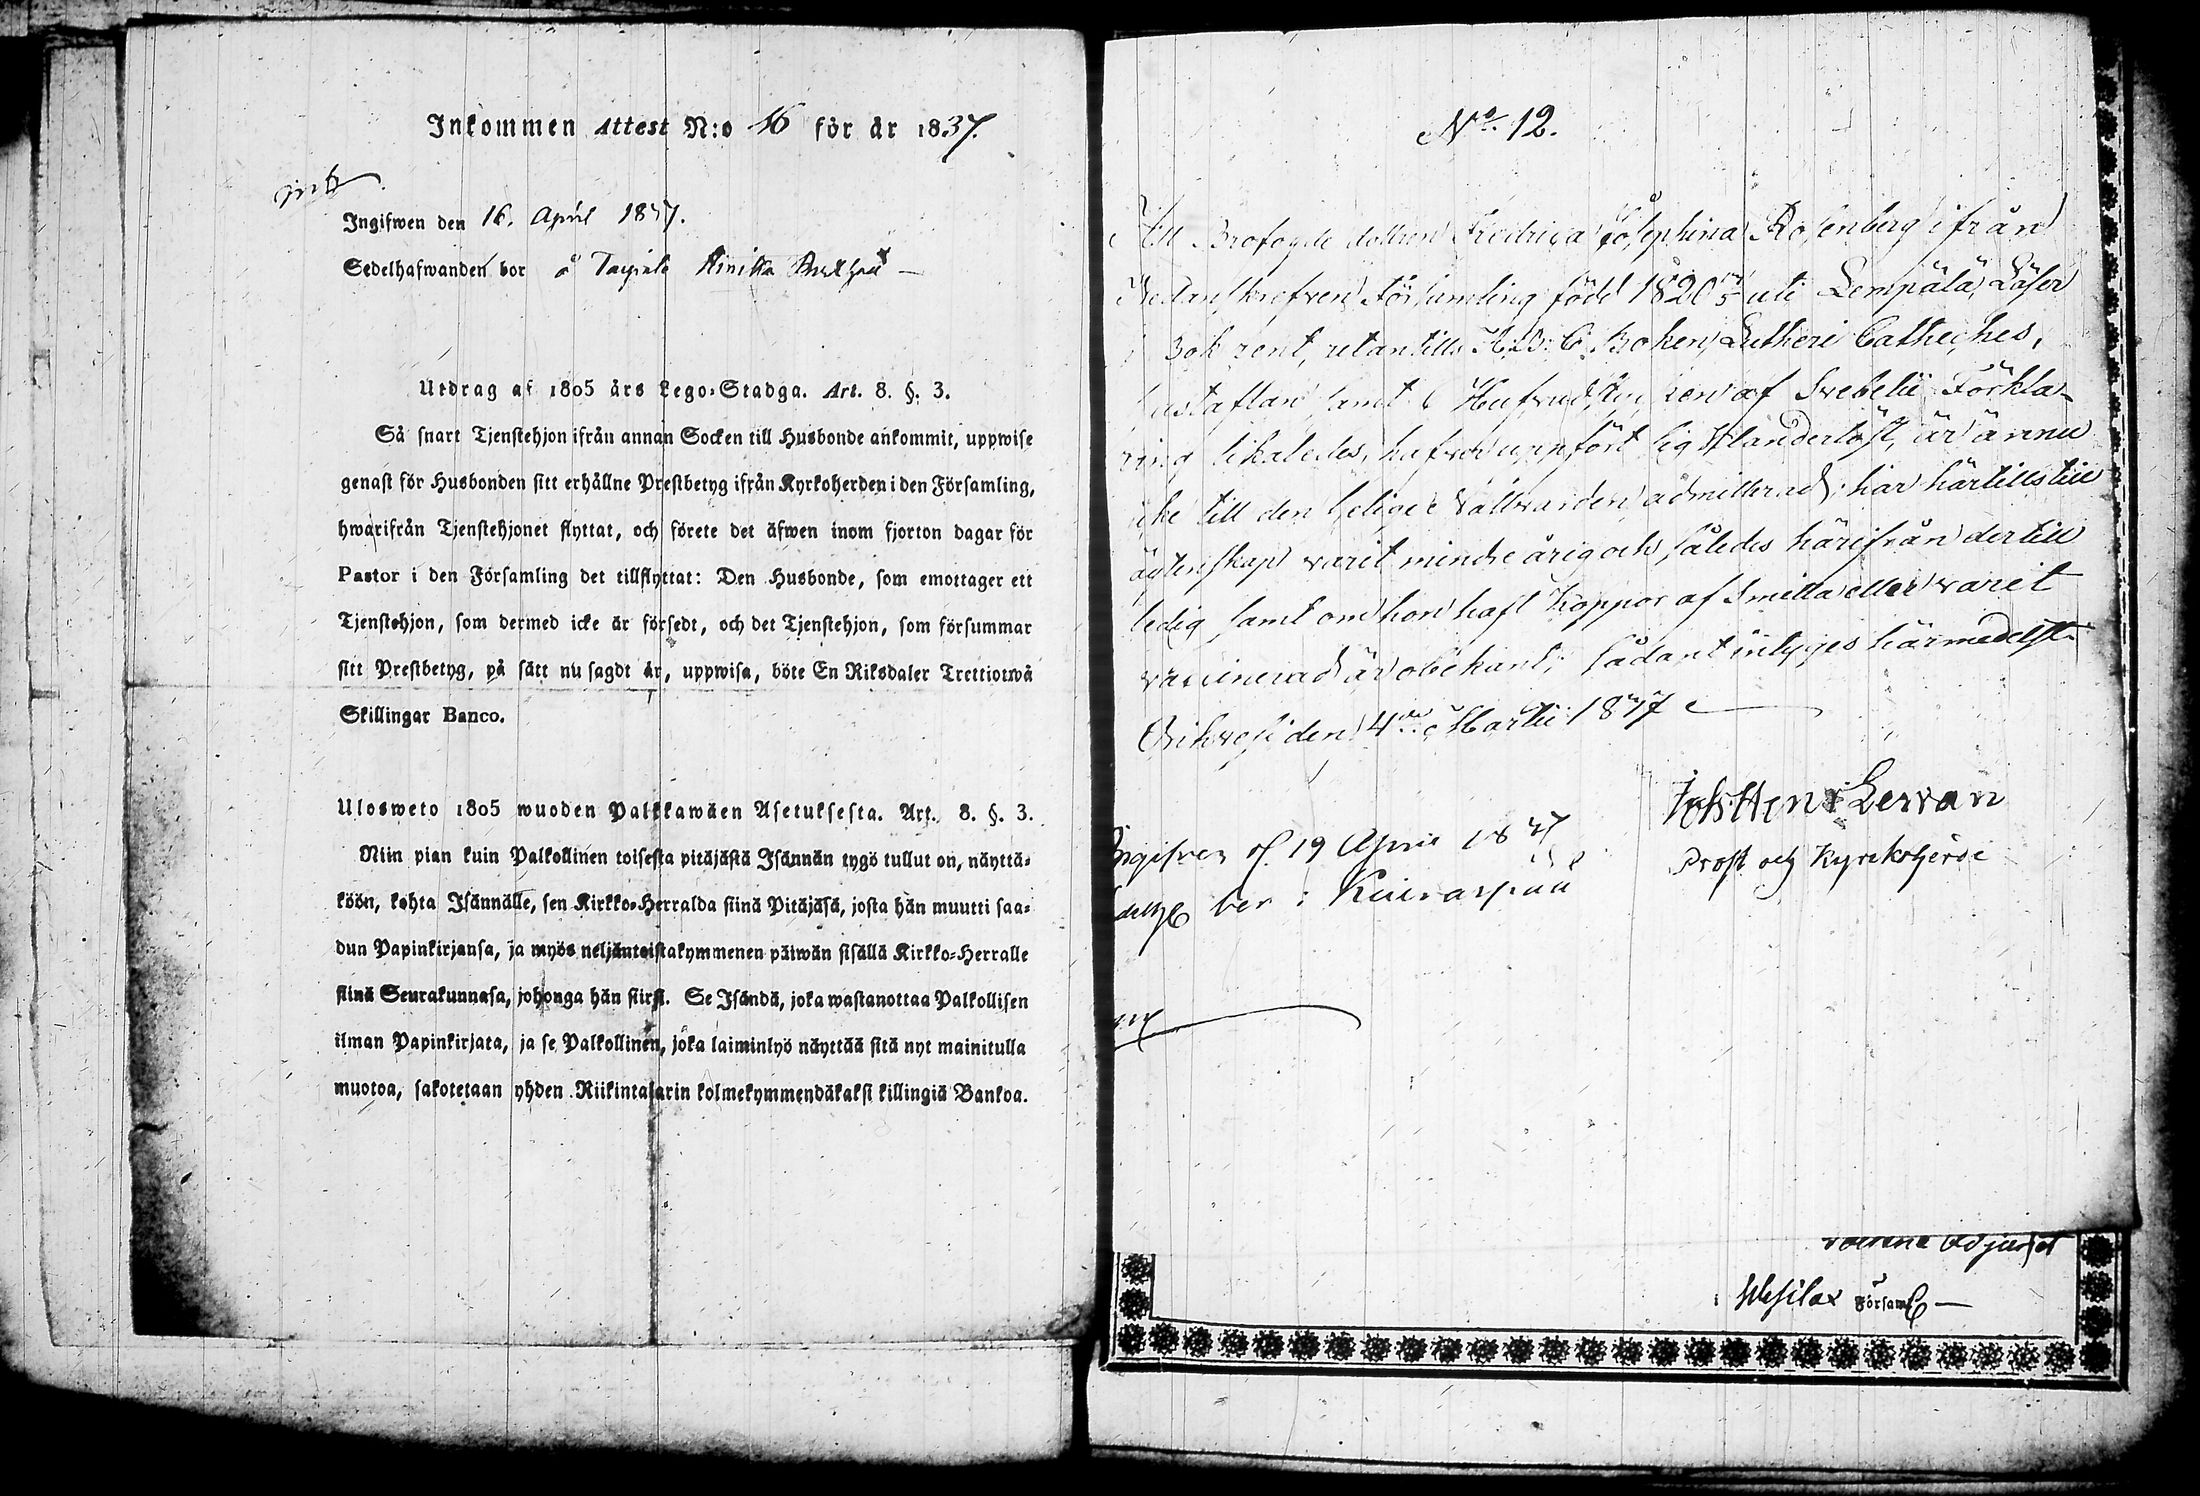 Inkommen Attest N:o 16 för år 1837.
Ingifwen den 16. April 1837.
Sedelhafwanden bor å
Utdrag af 1805 års Lego-Stadga. Art. 8. §. 3.
Så snart Tjenstehjon ifrån annan Socken till Husbonde ankommit, uppwise
genast för Husbonden sitt erhållne Prestbetyg ifrån Kyrkoherden i den Församling,
hwarifrån Tjenstehjonet flyttat, och förete det äfwen inom fjorton dagar för
Pastor i den Församling det tillflyttat: Den Husbonde, som emottager ett
Tjenstehjon, som dermed icke är försedt, och det Tjenstehjon, som försummar
sitt Prestbetyg, på sätt nu sagdt är, uppwisa, böte En Riksdaler Trettiotwå
Skillingar Banco.
Ulosweto 1805 wuoden Palkkawäen Asetuksesta. Art. 8. §. 3.
Niin pian kuin Palkollinen toisesta pitäjästä Isännän tygö tullut on, näyttä-
köön, kohta Isännälle, sen Kirkko-Herralda siinä Pitäjäsä, josta hän muutti saa-
dun Papinkirjansa, ja myös neljäntoistakymmenen päiwän sisällä Kirkko-Herralle
siinä Seurakunnasa, johonga hän siirsi. Se Isändä, joka wastanottaa Palkollisen
ilman Papinkirjata, ja se Palkollinen, joka laiminlyö näyttää sitä nyt mainitulla
muotoa, sakotetaan yhden Riikintalarin kolmekymmendäkaksi killingiä Bankoa.
No. 12.
Att Brofogde dottren Fredrica Josephina Rosenberg ifrån
Nedanskrefven Församling född 1820 uti Lempälä, Läser
i Bok rent, utantills A.B.C. Boken, Lutheri Catheches,
hustaflan samt Hufvudstycken af Svebelii Förkla-
ring likaledes, hafver uppfört sig klanderlöst, är ännu
icke till den helige Nattvarden admitterad; har härtills till
ägtenskap varit mindre årig och således härifrån dertill
ledig samt om hon haft Koppor af Smitta eller varit
vaccinerad är obekant; sådant intyges härmedelst.
Orihvesi den 4de Martii 1837
Joh Henr Lervan
Prost och Kyrckoherde
Ingifven d. 19 April 1837
bor i
Adjunct
i Wesilax Förseml